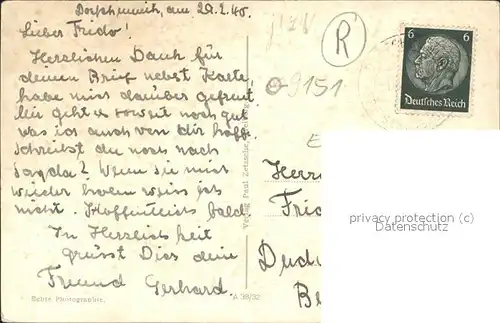 Dorfchemnitz, am 29.2.40.
Lieber Frido!
Herzlichen Dank für
deinen Brief nebst Karte,
habe mich darüber gefreut.
Mir geht es soweit noch gut
was ich auch von dir hoffe.
Schreibst du noch nach
Sayda? Wenn sie mich
wieder holen weiss ich
nicht. Hoffentlich bald
In Herzlichkeit
grüsst Dich dein
Freund Gerhard.
Echte Photographie.
A 38/32
Verlag Paul Zetzsche,
R
9151
6 6
Deutsches Reich
Herrn
Frid
privacy protection (c)
Datenschutz